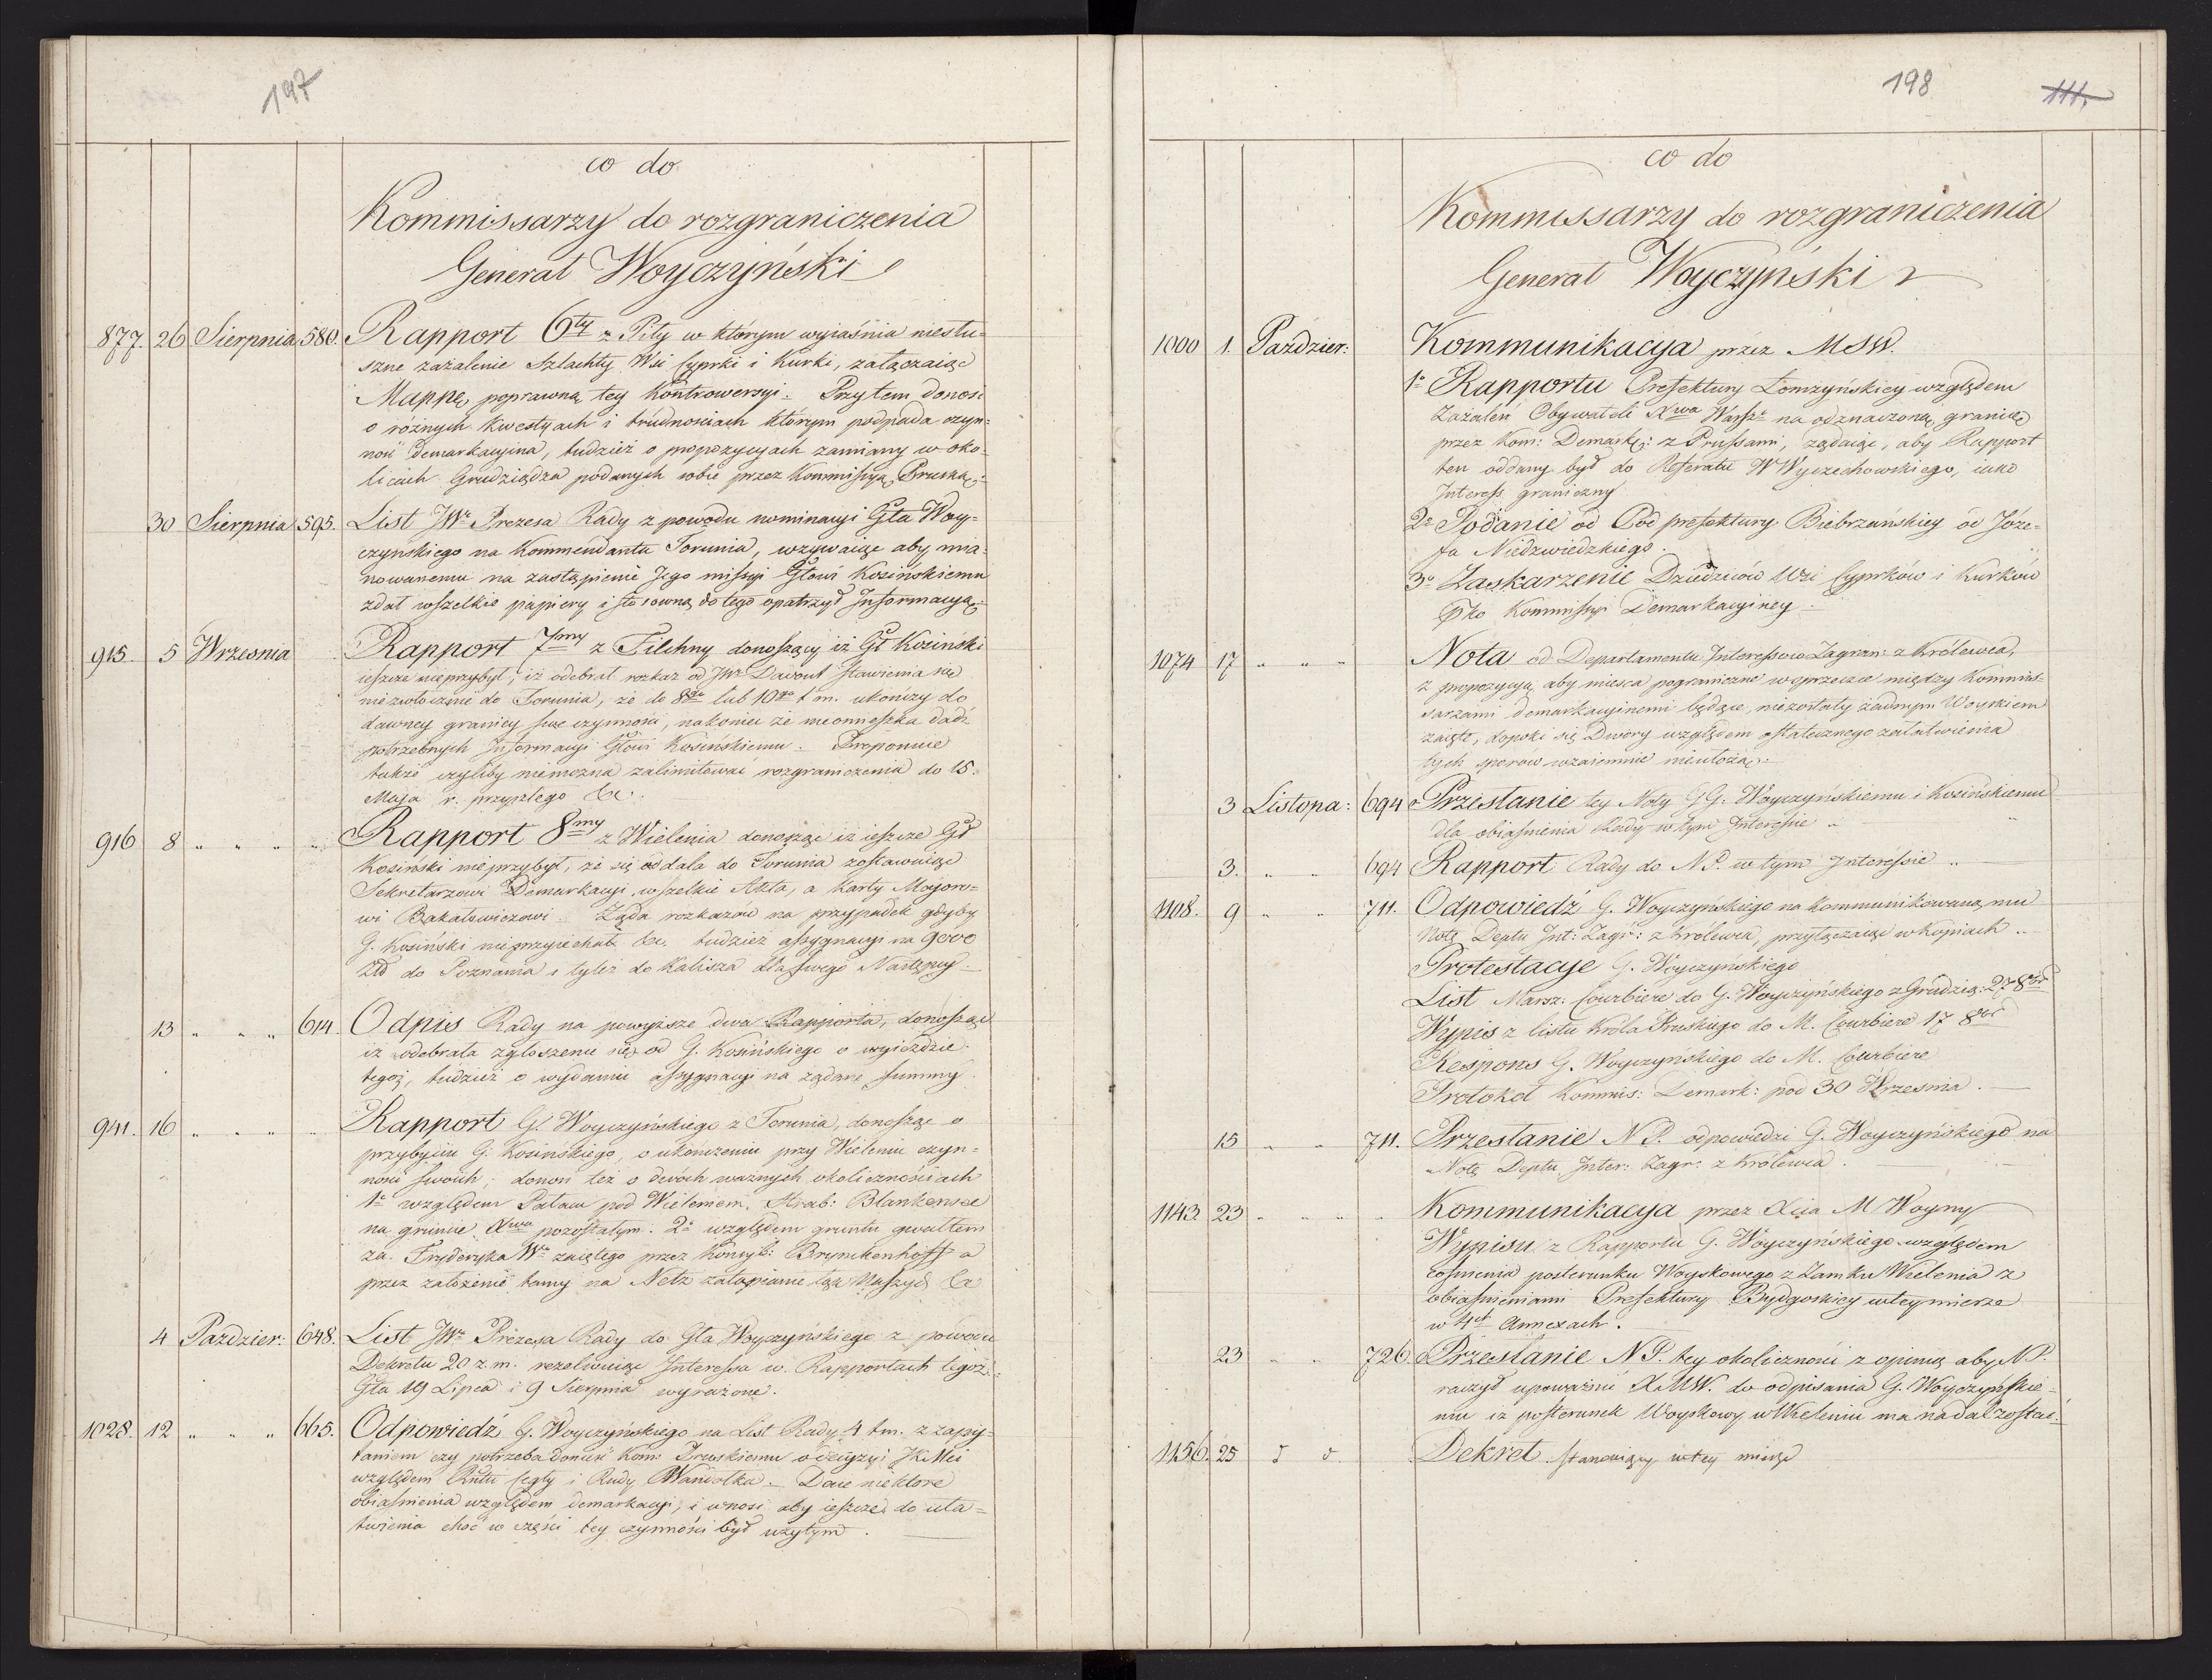 197
co do
Kommissarzy do rozgraniczenia
Generał Woyczyński
877. 26 Sierpnia 580. Rapport 6ty z Piły w którym wyiaśnia niesłu=
szne zażalenie Szlachty Wsi Cyprki i Kurki, załączaiąc
Mappę poprawną tey Kontrowersyi. Przytem donosi
o rożnych kwestyach i trudnościach którym podpada czyn=
ność demarkacyina, tudzież o propozycyach zamiany w oko=
licach Grudziądza podanych sobie przez Kommissyą Pruską.
30 Sierpnia 595. List JWo Prezesa Rady z powodu nominacyi Gła Woy=
czynskiego na Kommendanta Torunia, wzywaiąc aby mia=
nowanemu na zastąpienie Jego missyi Głowi Kosińskiemu
zdał wszelkie papiery i stosowną do tego opatrzył Informacyą.
915. 5 Wrzesnia Rapport 7my z Filehny donoszący iż Gł Kosinski
ieszcze nieprzybył, iż odebrał rozkaz od JWo Davout stawienia się
niezwłocznie do Torunia, że do 8go lub 10go t m. ukończy do
dawney granicy swe czynności, nakoniec że nieomieszka dadź
potrzebnych Informacyi Głowi Kosińskiemu. Proponuie
także czyliby niemożna zalimitować rozgraniczenia do 15.
Maja r. przyszłego &c.
916 8 " " " " Rapport 8my z Wielenia donosząc iż ieszcze Gł
Kosiński nieprzybył, że się oddala do Torunia zostawuiąc
Sekretarzowi Demarkacyi wszelkie Akta, a karty Mayoro=
wi Bakałowiczowi. Żąda rozkazów na przypadek gdyby
G. Kosiński nieprzyiechał &c. tudzież assygnacyi na 9000
Złł do Poznania i tyleż do Kalisza dla swego Następcy.
13 " " " 614. Odpis Rady na powyższe dwa Rapporta, donosząc
iż odebrała zgłoszenie się od G. Kosińskiego o wyieździe
tegoż, tudzież o wydaniu assygnacyi na żądane summy.
941. 16 " " " " Rapport Gł Woyczyńskiego z Torunia, donosząc o
przybyciu G. Kosińskiego, o ukończeniu przy Wieleniu czyn=
ności swoich; donosi też o dwóch ważnych okolicznościach
1o względem Pałacu pod Wieleniem, Hrab: Blankensee
na gruncie Xwa pozostałym. 2o względem gruntu gwałtem
za Fryderyka Wo zaiętego przez Konsyl: Brynckenhoff a
przez założenie tamy na Netz zatopianie łąk Naszych &c
4 Pazdzier: 648. List JWo Prezesa Rady do Gła Woyczyńskiego z powodu
Dekretu 20 z. m. rezolwuiąc Interessa w Rapportach tegoż
Gła 19 Lipca i 9 Sierpnia wyrażone.
1028. 12 " " " 665. Odpowiedź G. Woyczyńskiego na List Rady 4 t m. z zapy=
taniem czy potrzeba donieść Kom: Pruskiemu o decyzyi JKMci
względem Rudy Cegły i Rudy Wandolka. Daie niektóre
obiaśnienia względem demarkacyi, i wnosi aby ieszcze do uła=
twienia choć w części tey czynności był użytym.
198 111.
co do
Kommissarzy do rozgraniczenia
Generał Woyczyński
1000 1. Pazdzier: Kommunikacya przez MSW.
1o Rapportu Prefektury Łomzyńskiey względem
Zażaleń Obywateli Xwa Warsz. na odznaczoną granicę
przez Kom: Demark: z Prussami, żądaiąc, aby Rapport
ten oddany był do Referatu W Wyczechowskiego, iako
Interess graniczny
2o Podanie od Podprefektury Biebrzańskiey od Józe=
fa Niedzwiedzkiego.
3o Zaskarzenie Dziedziców Wsi Cyprków i Kurków
Pko Kommissyi Demarkacyiney.
1074 17 " " " Nota od Departamentu Interessów Zagran: z Królewca,
z propozycyą aby miesca pograniczne w sprzeczce między Kommis=
sarzami demarkacyinemi będące, niezostały żadnym Woyskiem
zaięte, dopoki się Dwory względem ostatecznego załatwienia
tych sporow wzaiemnie nieułożą.
3 Listopa: 694 Przesłanie tey Noty GG. Woyczyńskiemu i Kosińskiemu
dla obiaśnienia Rady w tym Interessie
3. " " 694 Rapport Rady do N.P. w tym Interessie
1108. 9 " " 711. Odpowiedź G. Woyczyńskiego na kommunikowaną mu
Notę Deptu Int: Zagr: z Krolewca, przyłączaiąc w kopiach
Protestacye G. Woyczyńskiego
List Marsz: Courbiere do G. Woyczyńskiego z Grudzią: 27 8br
Wypis z listu Króla Pruskiego do M. Courbiere 17 8br
Respons G. Woyczyńskiego do M. Courbiere
Protokol Kommis: Demark: pod 30 Wrzesnia.
15 " " 711. Przesłanie N.P. odpowiedzi G. Woyczyńskiego na
Notę Deptu Inter: Zagr. z Królewca.
1143. 23 " " " " Kommunikacya przez Xcia M Woyny
Wypisu z Rapportu G. Woyczyńskiego względem
cofnienia posterunku Woyskowego z Zamku Wielenia z
obiaśnieniami Prefektury Bydgoskiey w tey mierze
w 4ch Annexach.
23 " " 726. Przesłanie N.P. tey okoliczności z opinią aby N.P.
raczył upoważnić XMW. do odpisania G. Woyczyńskie=
mu iż posterunek Woyskowy w Wieleniu ma nadal zostać.
1156. 25 d d Dekret stanowiący w tey mierze